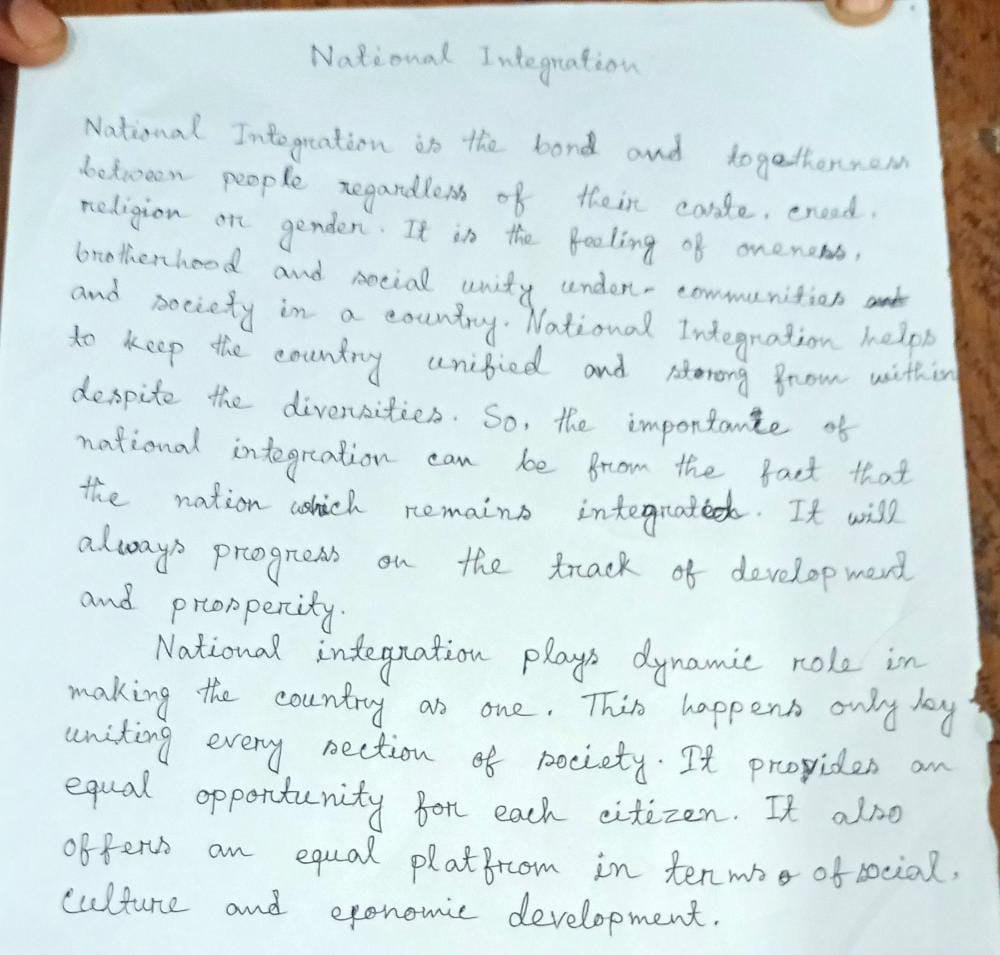 National Integration
National Integration is the bond and togetherness
between people regardless of their caste, creed,
religion or gender. It is the feeling of oneness,
brotherhood and social unity under communities
and society in a country. National Integration helps
to keep the country unified and strong from within
despite the diversities. So, the importante of
national integration can be from the fact that
the nation which remains integrated. It will
always progress on the track of development
and prosperity.
National integration plays dynamic role in
making the country as one. This happens only by
uniting every section of society. It provides an
equal opportunity for each citizen. It also
offers an equal platfrom in terms of social,
culture and economic development.